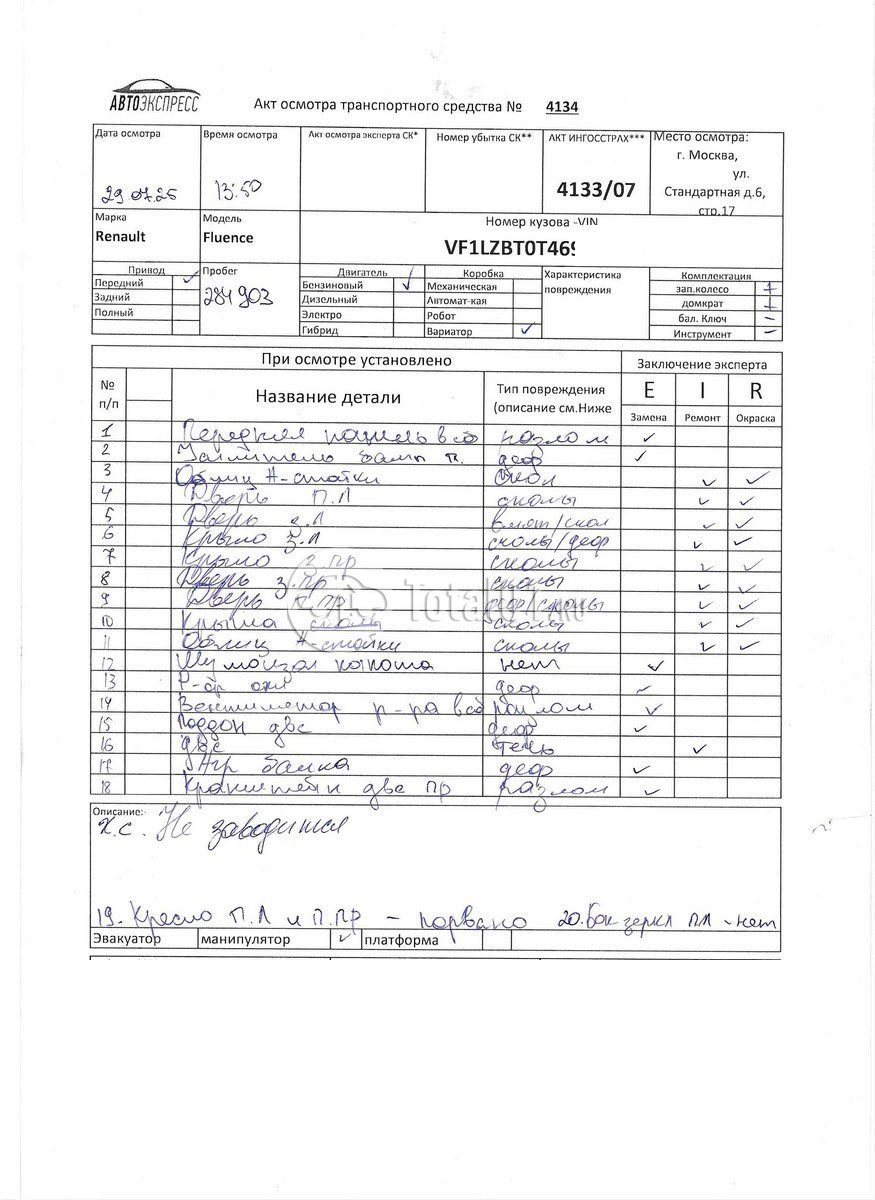 АВТОЭКСПРЕСС
Акт осмотра транспортного средства № 4134
Дата осмотра Время осмотра Акт осмотра эксперта СК* Номер убытка СК** АКТ ИНГОССТРАХ*** Место осмотра:
г. Москва,
ул.
29.07.25 13:50 4133/07 Стандартная д.6,
стр.17
Марка Модель Номер кузова -VIN
Renault Fluence VF1LZBT0T469
Привод Пробег Двигатель Коробка Характеристика Комплектация
Передний ✓ 284903 Бензиновый ✓ Механическая повреждения зап.колесо +
Задний Дизельный Автомат-кая домкрат +
Полный Электро Робот бал. Ключ –
Гибрид Вариатор ✓ Инструмент –
При осмотре установлено Заключение эксперта
№ п/п Название детали Тип повреждения (описание см.Ниже E I R
Замена Ремонт Окраска
1 Передняя панель в сб ✓
2 бампера п. деф ✓
3 Облиц А-стойки скол ✓ ✓
4 Дверь П.Л сколы ✓ ✓
5 Дверь з.Л вмят/скол ✓ ✓
6 Крыло З.Л сколы/деф ✓ ✓
7 Крыло з.пр сколы ✓ ✓
8 Дверь з.пр сколы ✓ ✓
9 Дверь п.пр деф/сколы ✓ ✓
10 Крыша сколы сколы ✓ ✓
11 Облиц А-стойки сколы ✓ ✓
12 Шумоизол капота нет ✓
13 Р-ор деф ✓
14 Вентилятор р-ра в сб разлом ✓
15 Поддон двс деф ✓
16 двс течь ✓
17 Агр балка деф ✓
18 Кронштейн двс пр разлом ✓
TotalCar.RU
Описание:
х.с. Не заводится
19. Кресло П.Л и П.ПР – порвано 20. Бок зеркл ПЛ - нет
Эвакуатор манипулятор ✓ платформа